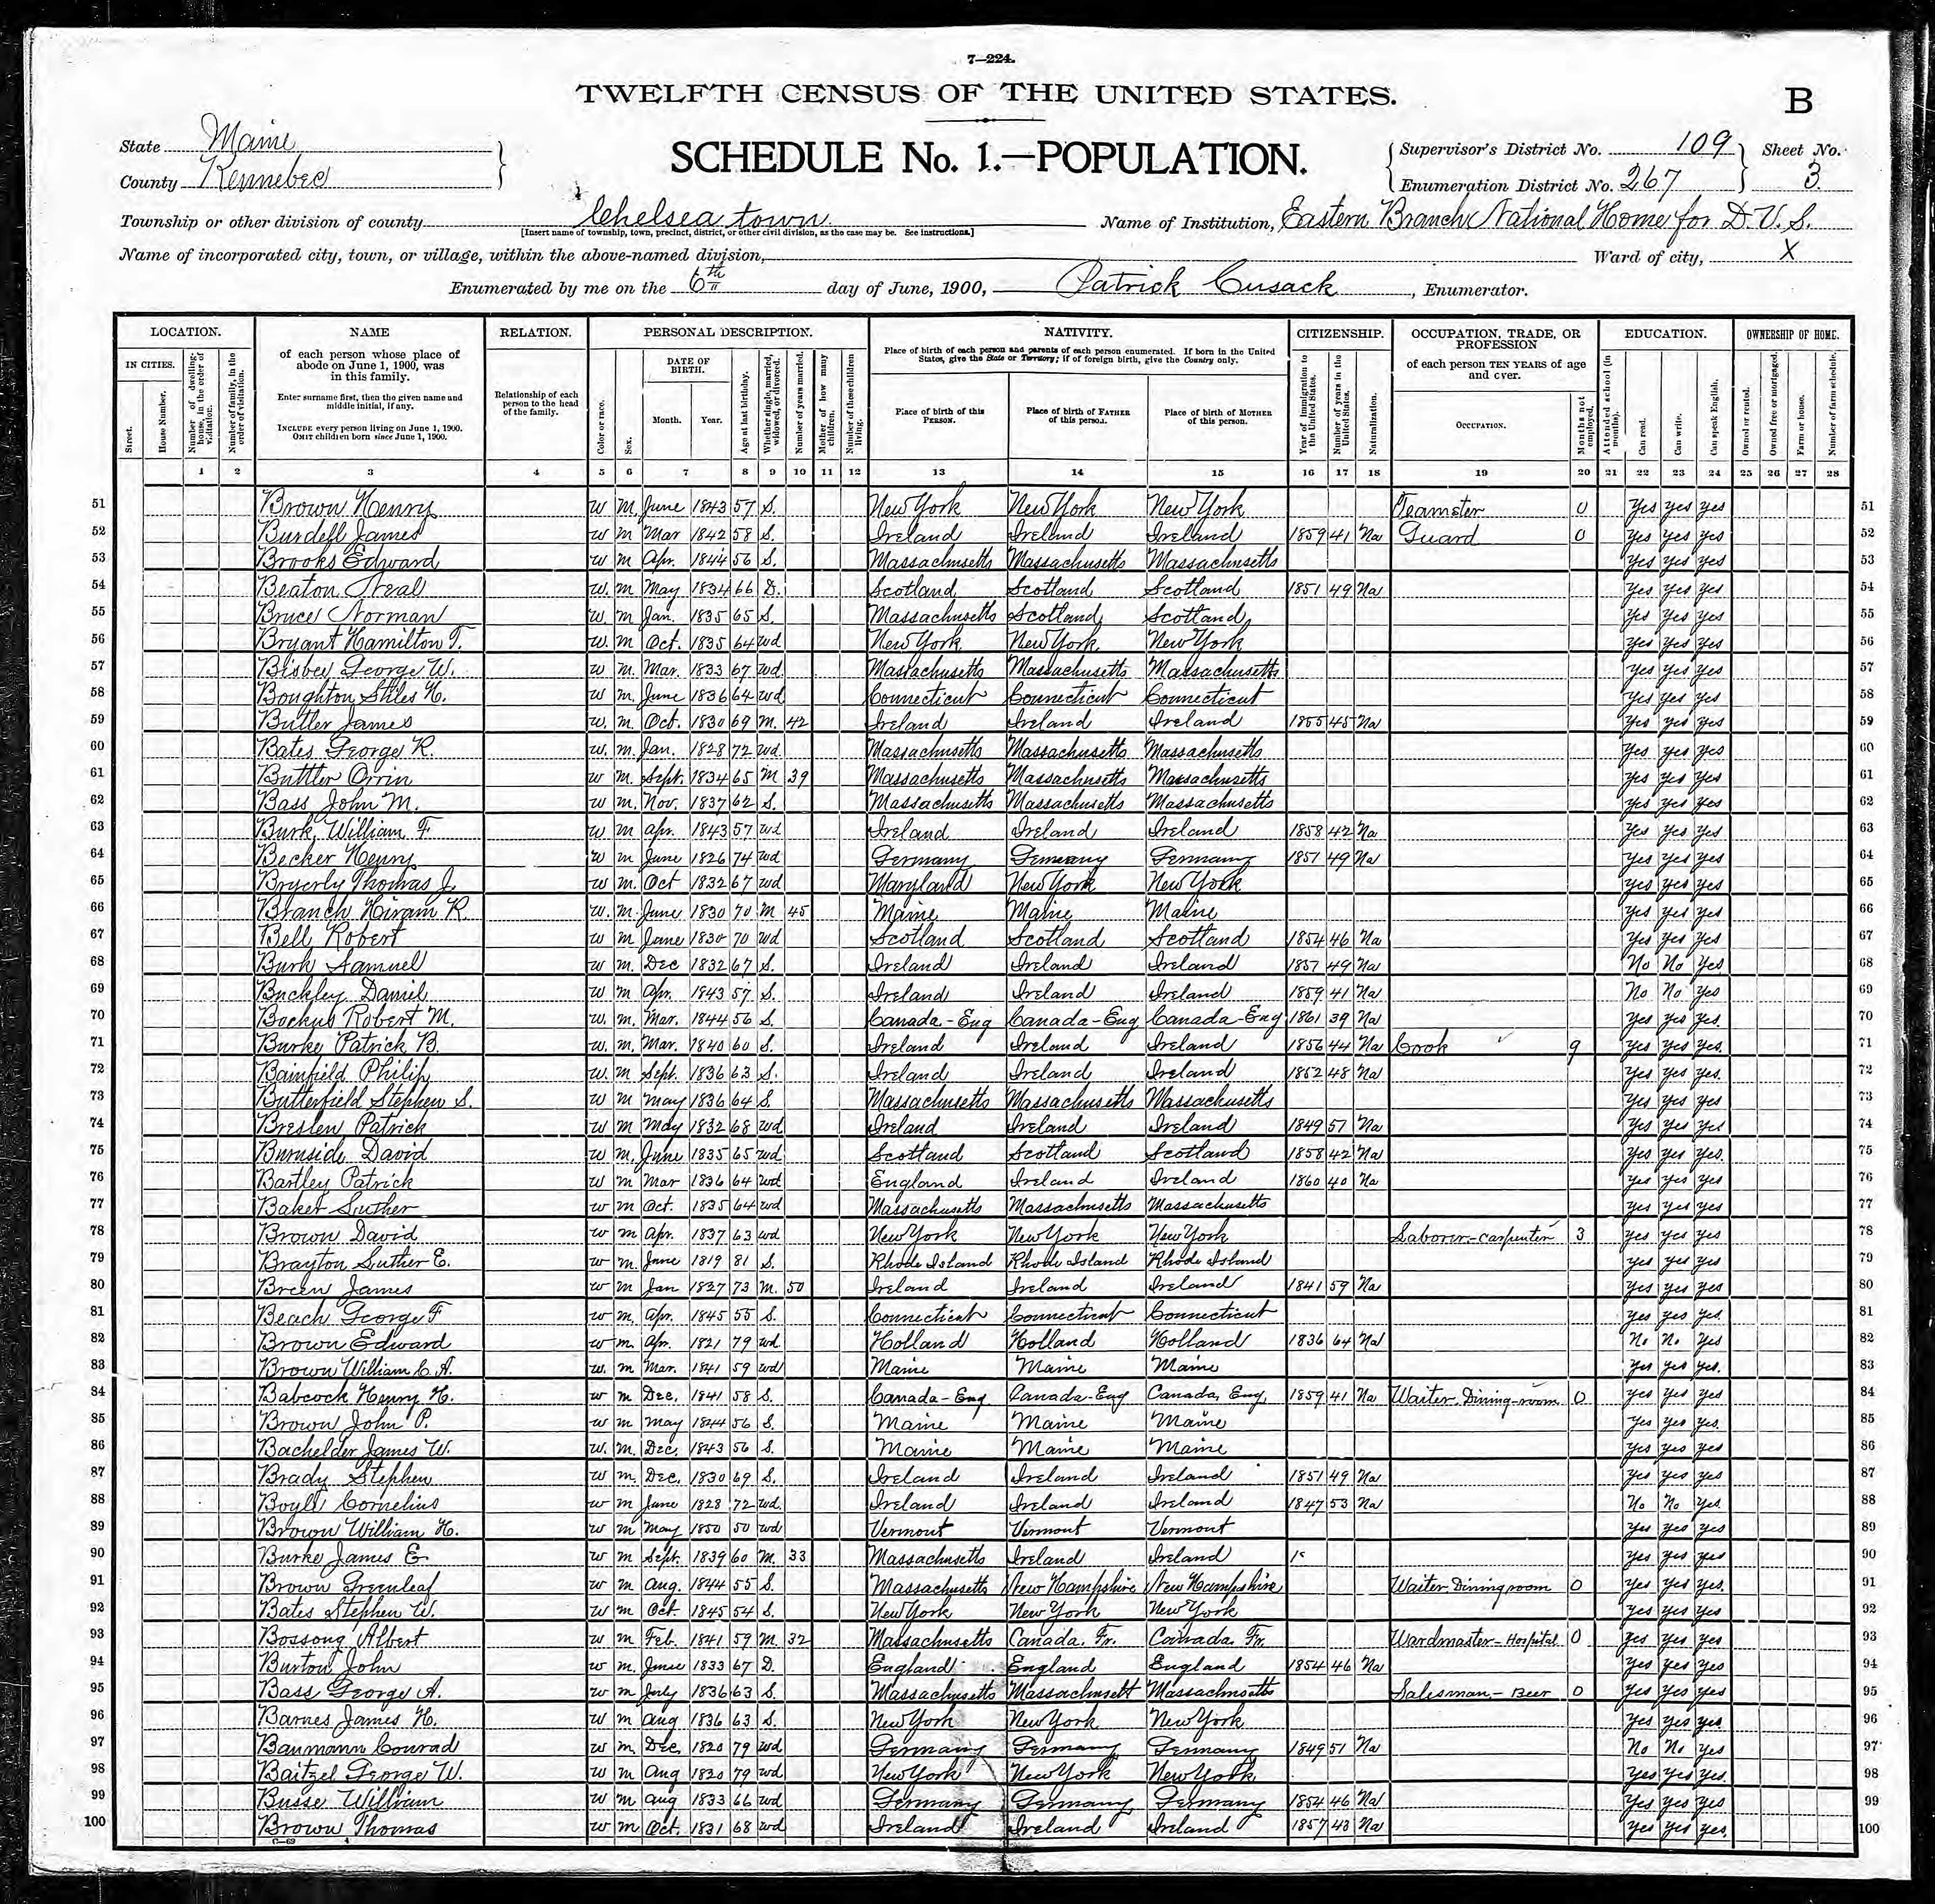 7—224.
TWELFTH CENSUS OF THE UNITED STATES.
B
State Maine
SCHEDULE No. 1.—POPULATION.
Supervisor's District No. 109 Sheet No.
County Kennebec
Enumeration District No. 267 3
Township or other division of county Chelsea town Name of Institution, Eastern Branch National Home for D. V. S.
[Insert name of township, town, precinct, district, or other civil division, as the case may be. See instructions.]
Name of incorporated city, town, or village, within the above-named division, Ward of city, X
Enumerated by me on the 6th day of June, 1900, Patrick Cusack, Enumerator.
LOCATION. NAME RELATION. PERSONAL DESCRIPTION. NATIVITY. CITIZENSHIP. OCCUPATION, TRADE, OR PROFESSION EDUCATION. OWNERSHIP OF HOME.
IN CITIES. Street. House Number. Number of dwelling-house, in the order of visitation. Number of family, in the order of visitation.
of each person whose place of abode on June 1, 1900, was in this family.
Enter surname first, then the given name and middle initial, if any.
INCLUDE every person living on June 1, 1900. OMIT children born since June 1, 1900.
Relationship of each person to the head of the family.
Color or race. Sex. DATE OF BIRTH. Month. Year. Age at last birthday. Whether single, married, widowed, or divorced. Number of years married. Mother of how many children. Number of these children living.
Place of birth of each person and parents of each person enumerated. If born in the United States, give the State or Territory; if of foreign birth, give the Country only.
Place of birth of this PERSON. Place of birth of FATHER of this person. Place of birth of MOTHER of this person.
Year of immigration to the United States. Number of years in the United States. Naturalization.
of each person TEN YEARS of age and over.
OCCUPATION. Months not employed. Attended school (in months). Can read. Can write. Can speak English. Owned or rented. Owned free or mortgaged. Farm or house. Number of farm schedule.
1 2 3 4 5 6 7 8 9 10 11 12 13 14 15 16 17 18 19 20 21 22 23 24 25 26 27 28
51 Brown Henry W M June 1843 57 S. New York New York New York Teamster 0 Yes yes yes 51
52 Burdell James W M Mar 1842 58 S. Ireland Ireland Ireland 1859 41 Na Guard 0 Yes yes yes 52
53 Brooks Edward W M Apr. 1844 56 S. Massachusetts Massachusetts Massachusetts Yes yes yes 53
54 Beaton Neal W. M May 1834 66 D. Scotland Scotland Scotland 1851 49 Na Yes yes yes 54
55 Bruce Norman W. M Jan. 1835 65 S. Massachusetts Scotland Scotland Yes yes yes 55
56 Bryant Hamilton T. W. M Oct. 1835 64 wd New York New York New York Yes yes yes 56
57 Bisbee George W. W M. Mar. 1833 67 wd. Massachusetts Massachusetts Massachusetts Yes yes yes 57
58 Boughton Stiles H. W M. June 1836 64 wd Connecticut Connecticut Connecticut Yes yes yes 58
59 Butler James W. M. Oct. 1830 69 M. 42 Ireland Ireland Ireland 1855 45 Na Yes yes yes 59
60 Bates George R. W. M. Jan. 1828 72 wd. Massachusetts Massachusetts Massachusetts Yes yes yes 60
61 Buttler Orrin W M. Sept. 1834 65 M 39 Massachusetts Massachusetts Massachusetts Yes yes yes 61
62 Bass John M. W M. Nov. 1837 62 S. Massachusetts Massachusetts Massachusetts Yes yes yes 62
63 Burk William F W M Apr. 1843 57 wd Ireland Ireland Ireland 1858 42 Na Yes yes yes 63
64 Becker Henry W M June 1826 74 wd Germany Germany Germany 1851 49 Na Yes yes yes 64
65 Bryerly Thomas J. W M. Oct 1832 67 wd Maryland New York New York Yes yes yes 65
66 Branch Hiram R. W. M. June 1830 70 M 45 Maine Maine Maine Yes yes yes 66
67 Bell Robert W M June 1830 70 wd Scotland Scotland Scotland 1854 46 Na Yes yes yes 67
68 Burk Samuel W M. Dec 1832 67 S. Ireland Ireland Ireland 1851 49 Na No No Yes 68
69 Buckley Daniel W M Apr. 1843 57 S. Ireland Ireland Ireland 1859 41 Na No No Yes 69
70 Bockus Robert M. W. M. Mar. 1844 56 S. Canada-Eng Canada-Eng Canada-Eng 1861 39 Na Yes yes yes. 70
71 Burke Patrick B. W. M. Mar. 1840 60 S. Ireland Ireland Ireland 1856 44 Na Cook 9 Yes yes yes. 71
72 Bainfield Philip W. M Sept. 1836 63 S. Ireland Ireland Ireland 1852 48 Na Yes yes yes. 72
73 Butterfield Stephen S. W M May 1836 64 S. Massachusetts Massachusetts Massachusetts Yes yes yes 73
74 Breslen Patrick W M May 1832 68 wd Ireland Ireland Ireland 1849 51 Na Yes yes yes 74
75 Burnside David W M. June 1835 65 wd Scotland Scotland Scotland 1858 42 Na Yes yes yes. 75
76 Bartley Patrick W M Mar 1836 64 wd England Ireland Ireland 1860 40 Na Yes yes yes 76
77 Baker Luther W M Oct. 1835 64 wd Massachusetts Massachusetts Massachusetts Yes yes yes 77
78 Brown David W M Apr. 1837 63 wd New York New York New York Laborer-Carpenter 3 yes yes yes 78
79 Brayton Luther E. W M. June 1819 81 S. Rhode Island Rhode Island Rhode Island yes yes yes 79
80 Breen James W M Jan 1827 73 M. 50 Ireland Ireland Ireland 1841 59 Na Yes yes yes 80
81 Beach George F W M. Apr. 1845 55 S. Connecticut Connecticut Connecticut Yes yes yes. 81
82 Brown Edward W M. Apr. 1821 79 wd. Holland Holland Holland 1836 64 Na No No Yes 82
83 Brown William C. A. W. M Mar. 1841 59 wd Maine Maine Maine yes yes yes. 83
84 Babcock Henry H. W M Dec. 1841 58 S. Canada-Eng Canada-Eng Canada, Eng. 1859 41 Na Waiter Dining-room 0 yes yes yes 84
85 Brown John P. W M May 1844 56 S. Maine Maine Maine Yes yes yes. 85
86 Bachelder James W. W. M. Dec. 1843 56 S. Maine Maine Maine Yes yes yes 86
87 Brady Stephen W M. Dec. 1830 69 S. Ireland Ireland Ireland 1851 49 Na Yes yes yes 87
88 Boyle Cornelius W M June 1828 72 wd. Ireland Ireland Ireland 1847 53 Na No No Yes. 88
89 Brown William H. W M May 1850 50 wd Vermont Vermont Vermont Yes yes yes 89
90 Burke James E W M Sept. 1839 60 M. 33 Massachusetts Ireland Ireland Yes yes yes 90
91 Brown Greenleaf W M Aug. 1844 55 S. Massachusetts New Hampshire New Hampshire Waiter Dining room 0 Yes yes yes. 91
92 Bates Stephen W. W M Oct. 1845 54 S. New York New York New York Yes yes yes 92
93 Bossong Albert W M Feb. 1841 59 M. 32 Massachusetts Canada. Fr. Canada Fr. Wardmaster-Hospital 0 yes yes yes 93
94 Burton John W M. June 1833 67 D. England England England 1854 46 Na Yes yes yes 94
95 Bass George A. W M July 1836 63 S. Massachusetts Massachusett Massachusetts Salesman-Beer 0 Yes yes yes 95
96 Barnes James H. W M Aug 1836 63 S. New York New York New York Yes yes yes 96
97 Baumann Conrad W M. Dec. 1820 79 wd Germany Germany Germany 1849 51 Na No No yes 97
98 Baitzel George W. W M Aug 1820 79 wd. New York New York New York Yes yes yes. 98
99 Busse William W M Aug 1833 66 wd Germany Germany Germany 1854 46 Na Yes yes yes 99
100 Brown Thomas W M Oct. 1831 68 wd Ireland Ireland Ireland 1857 43 Na Yes yes yes. 100